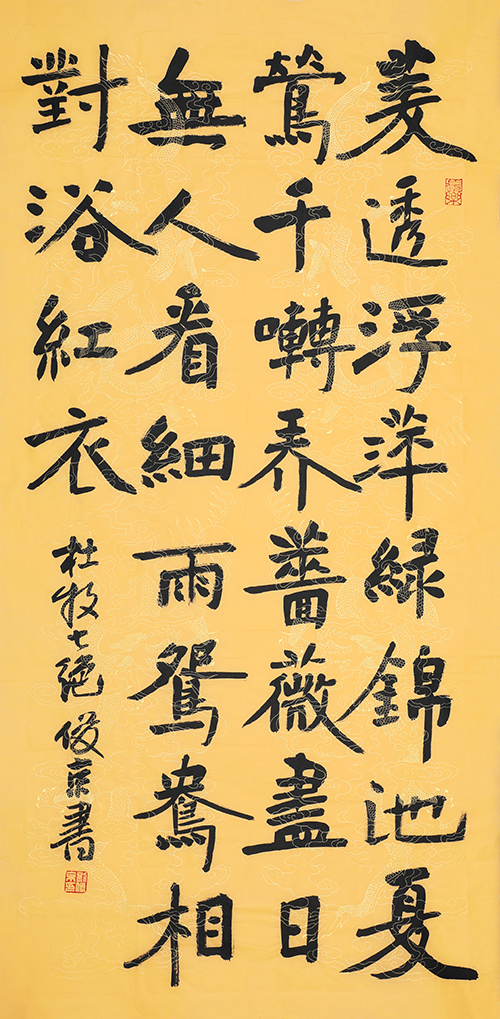 菱透浮萍緑錦池夏
鶯千囀弄薔薇盡日
無人看細雨鴛鴦相
對浴紅衣
杜牧七絕 俊京書